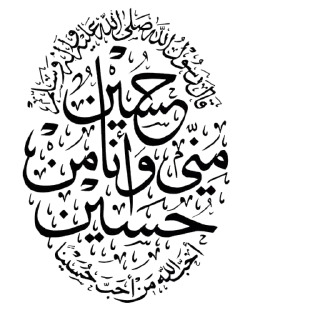 قال رسول الله صلى الله عليه وآله وسلم
حسين
مني وأنا من
حسين
أحب الله من أحب حسينا